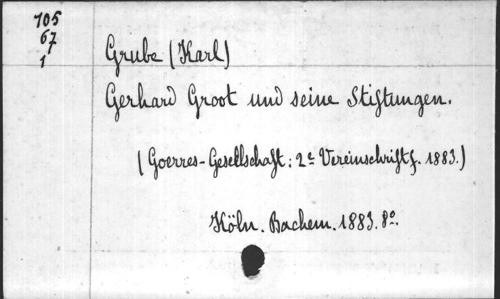 705
67
1
Grube (Karl)
Gerhard Groot und seine Stiftungen.
(Goerres-Gesellschaft: 2e Vereinschrift f. 1883.)
Köln. Bachem. 1883. 8o.